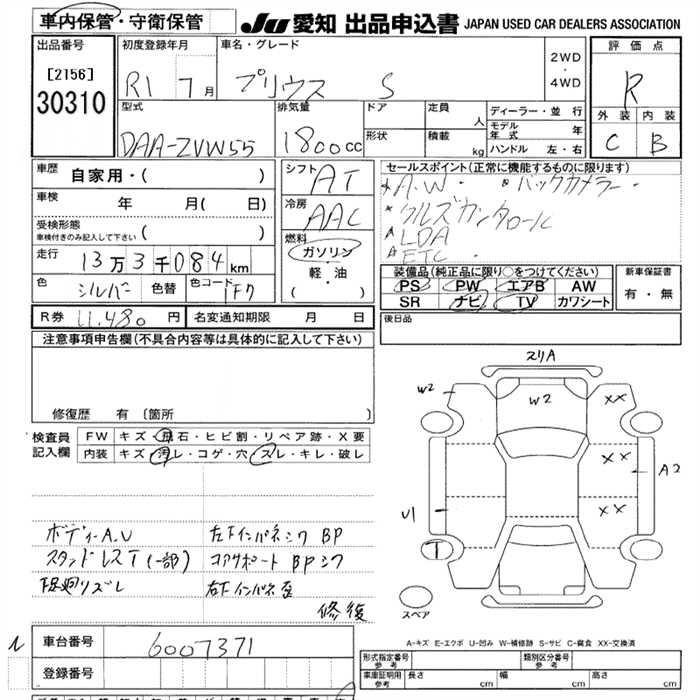 車内保管・守衛保管
JU 愛知 出品申込書 JAPAN USED CAR DEALERS ASSOCIATION
出品番号
[2156]
30310
初度登録年月
R1 7月
車名・グレード
プリウス S
2WD
・
4WD
評価点
R
外装 内装
C B
型式
DAA-ZVW55
排気量
1800cc
ドア
形状
定員 人
積載 kg
ディーラー・並行
モデル年式 年
ハンドル 左・右
車歴
自家用・( )
車検 年 月( 日)
受検形態
車検付きのみ記入して下さい ( )
走行
13万3千084km
色 シルバー 色替 色コード 1F7
シフト AT
冷房 AAC
燃料
ガソリン
・
軽・油
( )
セールスポイント(正常に機能するものに限ります)
A.W ・ バックカメラー
クルズカンタロール
LDA
ETC
装備品(純正品に限り○をつけてください)
PS PW エアB AW
SR ナビ TV カワシート
新車保証書
有・無
R券 11,480円 名変通知期限 月 日
後日品
注意事項申告欄(不具合内容等は具体的に記入して下さい)
修復歴 有 〔箇所 〕
検査員
記入欄
FW キズ・飛石・ヒビ割・リペア跡・X要
内装 キズ・汚レ・コゲ・穴・スレ・キレ・破レ
ボディーA.U 右下インパネシワ BP
スタンドレスT(一部) コアサポート BPシワ
足廻リズレ 右下インパネ歪
修復
スリA
W2
W2
XX
XX
A2
XX
U1
T
スペア
A-キズ E-エクボ U-凹み W-補修跡 S-サビ C-腐食 XX-交換済
車台番号 6007371
登録番号
形式指定番号
参考
類別区分番号
参考
車庫証明用
参考
長さ cm 幅 cm 高さ cm